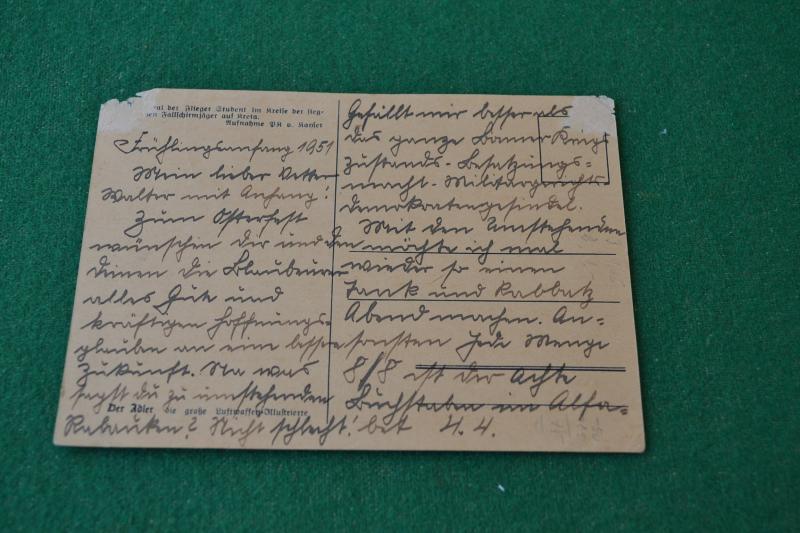 al der Flieger Student im Kreise der sieg-
en Fallschirmjäger auf Kreta.
Aufnahme PK v. Kayser
Frühlingsanfang 1951
Mein lieber Vetter
Walter mit Anhang!
Zum Osterfest
wünschen dir und den
deinen die Blaubeurer
alles Gute und
kräftigen Hoffnungs-
glauben an eine bessre
Zukunft. Na was
sagst du zu umstehenden
Der Adler die große Luftwaffen-Illustrierte
Rabauken? Nicht schlecht!
Gefällt mir besser als
das ganze Bonner Kriegs
zustands-Besatzungs=
macht-Militärgerichts-
demokratengesindel.
Mit den Umstehenden
möchte ich mal
wieder so einen
Zank und Rabbatz
Abend machen. An=
sonsten Jede Menge
8/8 ist der Achte
Buchstaben im Alfa=
bet 4.4.